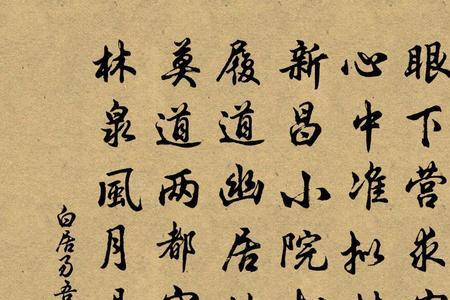 眼下营求
心中准拟
新昌小院
履道幽居
莫道两都
林泉風月
白居易